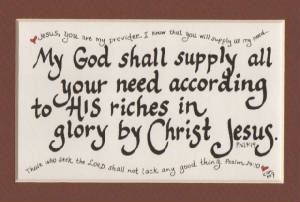 Jesus, you are my provider. I know that you will supply all my need.
My God shall supply all
your need according
to HIS riches in
glory by Christ Jesus.
Phil 4:19
Those who seek the LORD shall not lack any good thing. Psalm 34:10